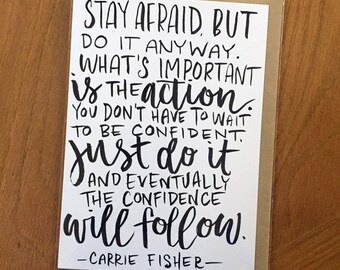 STAY AFRAID, BUT
DO IT ANYWAY.
WHAT'S IMPORTANT
is THE action.
YOU DON'T HAVE TO WAIT
TO BE CONFIDENT.
just do it
AND EVENTUALLY
THE CONFIDENCE
will follow.
-CARRIE FISHER-